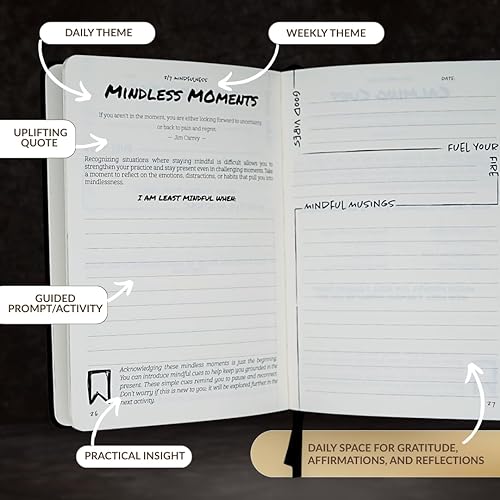 DAILY THEME
WEEKLY THEME
2/7 MINDFULNESS
MINDLESS MOMENTS
If you aren't in the moment, you are either looking forward to uncertainty,
or back to pain and regret.
— Jim Carrey —
UPLIFTING
QUOTE
Recognizing situations where staying mindful is difficult allows you to
strengthen your practice and stay present even in challenging moments. Take
a moment to reflect on the emotions, distractions, or habits that pull you into
mindlessness.
I AM LEAST MINDFUL WHEN:
GUIDED
PROMPT/ACTIVITY
Acknowledging these mindless moments is just the beginning.
You can introduce mindful cues to help keep you grounded in the
present. These simple cues remind you to pause and reconnect.
Don't worry if this is new to you; it will be explored further in the
next activity.
26
PRACTICAL INSIGHT
DATE:
GOOD VIBES
FUEL YOUR
FIRE
MINDFUL MUSINGS
27
DAILY SPACE FOR GRATITUDE,
AFFIRMATIONS, AND REFLECTIONS